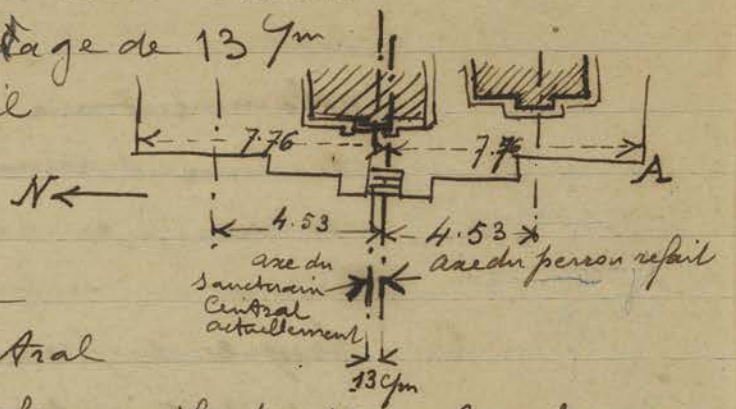 tage de 13 c/m
7.76 7.76
A
N
4.53 4.53
axe du
sanctuaire
Central
actuellement
axe du perron refait
tral
13 c/m